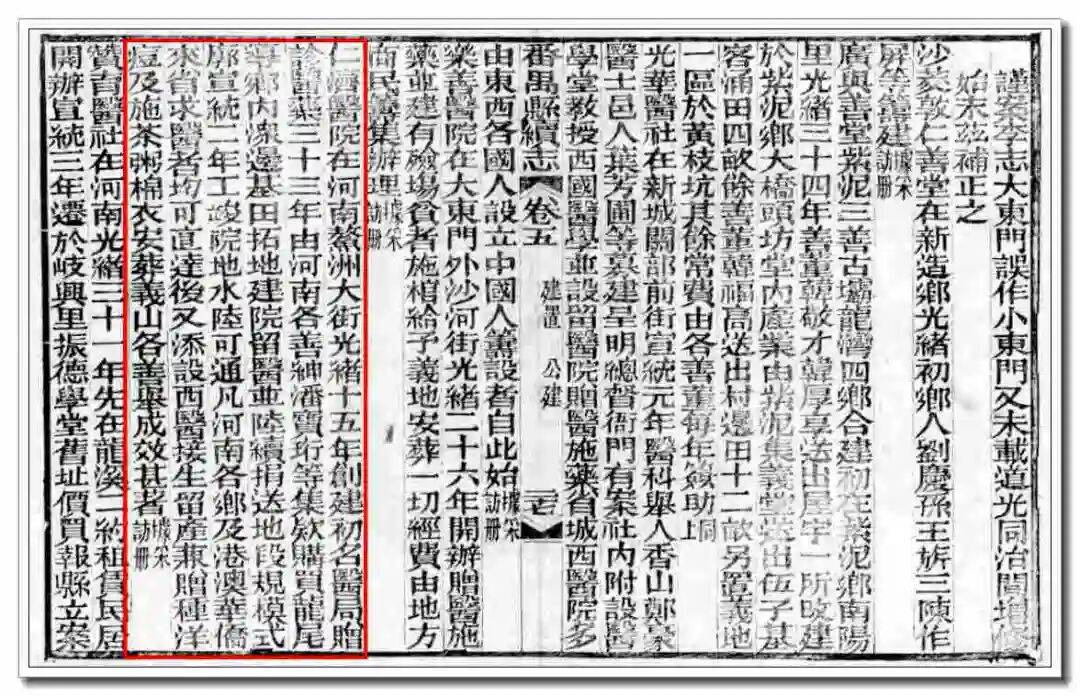 謹案李志大東門誤作小東門又未載道光同治間增修
始末茲補正之
沙菱敦仁善堂在新造鄉光緒初鄉人劉慶孫王族三陳作
屏等籌建據采訪冊
廣與善堂紫泥三善古壩龍灣四鄉合建初在紫泥鄉南陽
里光緒三十四年善董韓敬才韓厚享送出屋宇一所改建
於紫泥鄉大橋頭坊堂內產業由紫泥集義堂送出伍子基
客涌田四畝餘善董韓福高送出村邊田十二畝另置義地
一區於黃枝坑其餘常費由各善董每年簽助同上
光華醫社在新城關部前街宣統元年醫科舉人香山鄭豪
醫士邑人葉芳圃等募建呈明總督衙門有案社內附設醫
學堂教授西國醫學並設留醫院贈醫施藥省城西醫院多
番禺縣續志 卷五 建置 公建
由東西各國人設立中國人籌設者自此始據采訪冊
樂善醫院在大東門外沙河街光緒二十六年開辦贈醫施
藥並建有殮場貧者施棺給予義地安葬一切經費由地方
商民籌集辦理據采訪冊
仁濟醫院在河南鰲洲大街光緒十五年創建初名醫局贈
診醫藥三十三年由河南各善紳潘寶珩等集欵購買龍尾
導鄉內漖邊基田拓地建院留醫並陸續捐送地段規模式
廓宣統二年工竣院地水陸可通凡河南各鄉及港澳華僑
來省求醫者均可直達後又添設西醫接生留產兼贈種洋
痘及施茶粥棉衣安葬義山各善舉成效甚著據采訪冊
贊育醫社在河南光緒三十一年先在龍溪二約租賃民居
開辦宣統三年遷於岐興里振德學堂舊址價買報縣立案